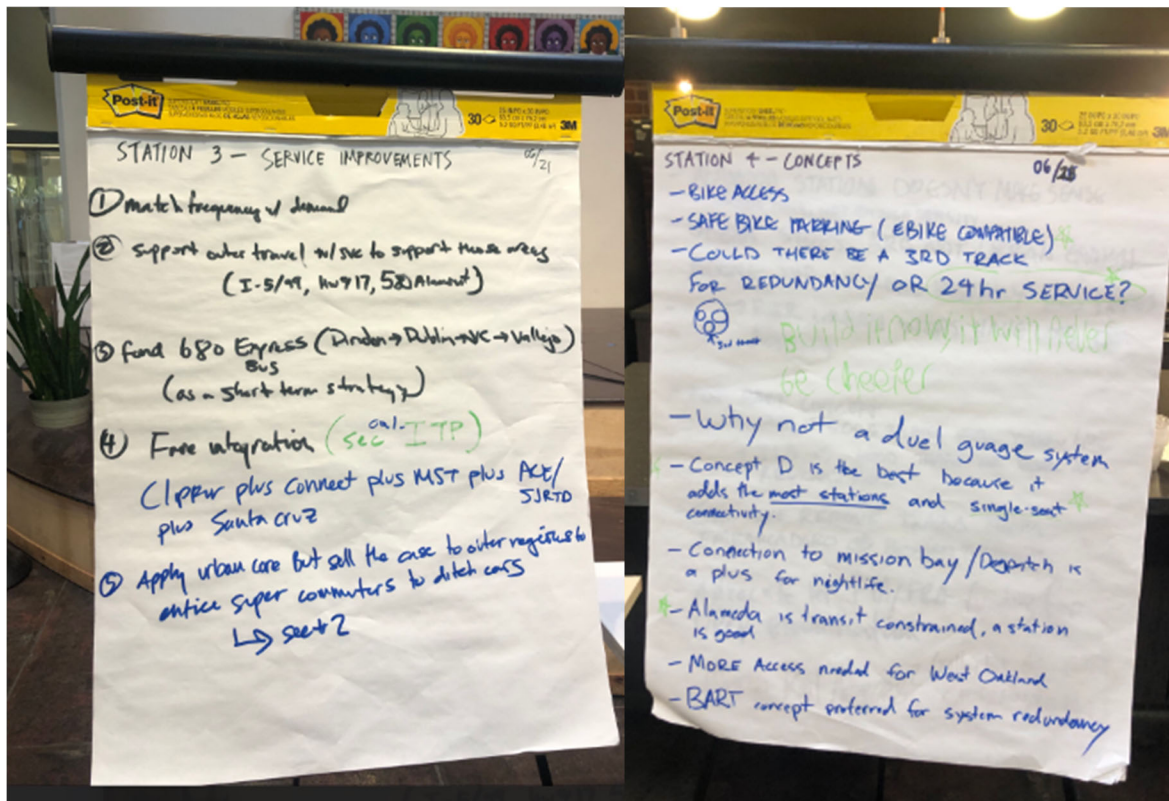 Post-it
30
3M
STATION 3 – SERVICE IMPROVEMENTS
06/21
① match frequency w/ demand
② support outer travel w/svc to support those areas
(I-5/99, Hwy 17, 580 Altamont)
③ fund 680 Express (Diridon→Dublin→WC→Vallejo)
Bus
(as a short term strategy)
④ Fare integration (see cal-ITP)
Clipper plus connect plus MST plus ACE/
SJRTD
plus Santa Cruz
⑤ Apply urban core But sell the case to outer regions to
entice super commuters to ditch cars
↳ see #2
Post-it
30
3M
STATION 4 – CONCEPTS
06/28
– BIKE ACCESS
– SAFE BIKE PARKING (EBIKE COMPATIBLE)
– COULD THERE BE A 3RD TRACK
FOR REDUNDANCY OR 24hr SERVICE?
Build it now, it will never
be cheeper
– Why not a duel guage system
– Concept D is the best because it
adds the most stations and single-seat
connectivity.
– Connection to mission bay/Dogpatch is
a plus for nightlife.
– Alameda is transit constrained, a station
is good
– MORE Access needed for West Oakland
– BART concept preferred for system redundancy